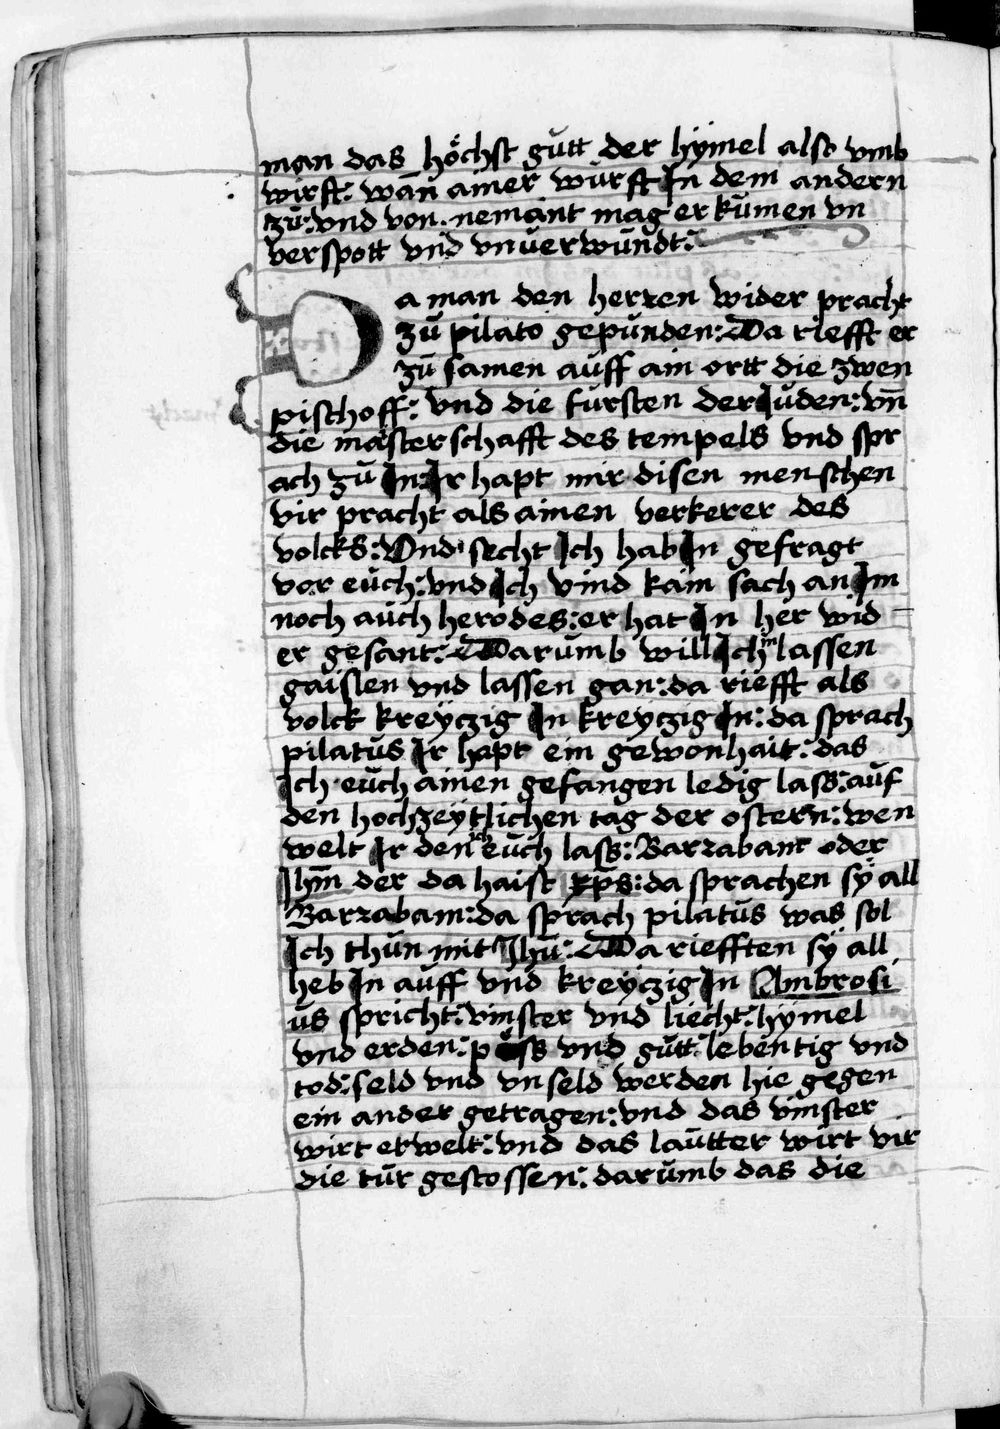 man das höchst gůtt der hÿmel also vmb
wirft: wan̄ ainer wůrft In dem andern
zů: vnd von nemant mag er kůmen vn
verspott vnd vnuerwůndt:
Da man den herren wider pracht
zů pilato gepůnden: Da riefft er
zů samen aůff ain ortt die zwen
pischoff: vnd die fůrsten der Iůden: vn̄
die masterschafft des tempels vnd spr
ach zů In: Ir hapt mir disen menschen
vir pracht als ainen verkerer des
volcks: Vnd secht Ich hab In gefragt
vor eůch: vnd Ich vind kain sach an Im
noch aůch herodes: er hat In her wid
er gesant: Darůmb will Ich in lassen
gaislen vnd lassen gan: da riefft als
volck kreÿczig In kreÿczig In: da sprach
pilatůs Ir hapt ein gewonhait: das
Ich eůch ainen gefangen ledig lass: aůf
den hochzeÿtlichen tag der ostern: wen
welt Ir den ich eůch lass: Barrabam oder
Ihm̄ der da haist xp̄s: da sprachen sÿ all
Barrabam: da sprach pilatůs was sol
Ich thůn mit Ihū: Da riefften sÿ all
heb In aůff vnd kreÿczig In Ambrosi
ůs spricht: vinster vnd liecht: hÿmel
vnd erden: pöss vnd gůtt: lebentig vnd
tod: seld vnd vnseld werden hie gegen
ein ander getragen: vnd das vinster
wirt erwelt: vnd das laůtter wirt vir
die tůr gestossen: darůmb das die